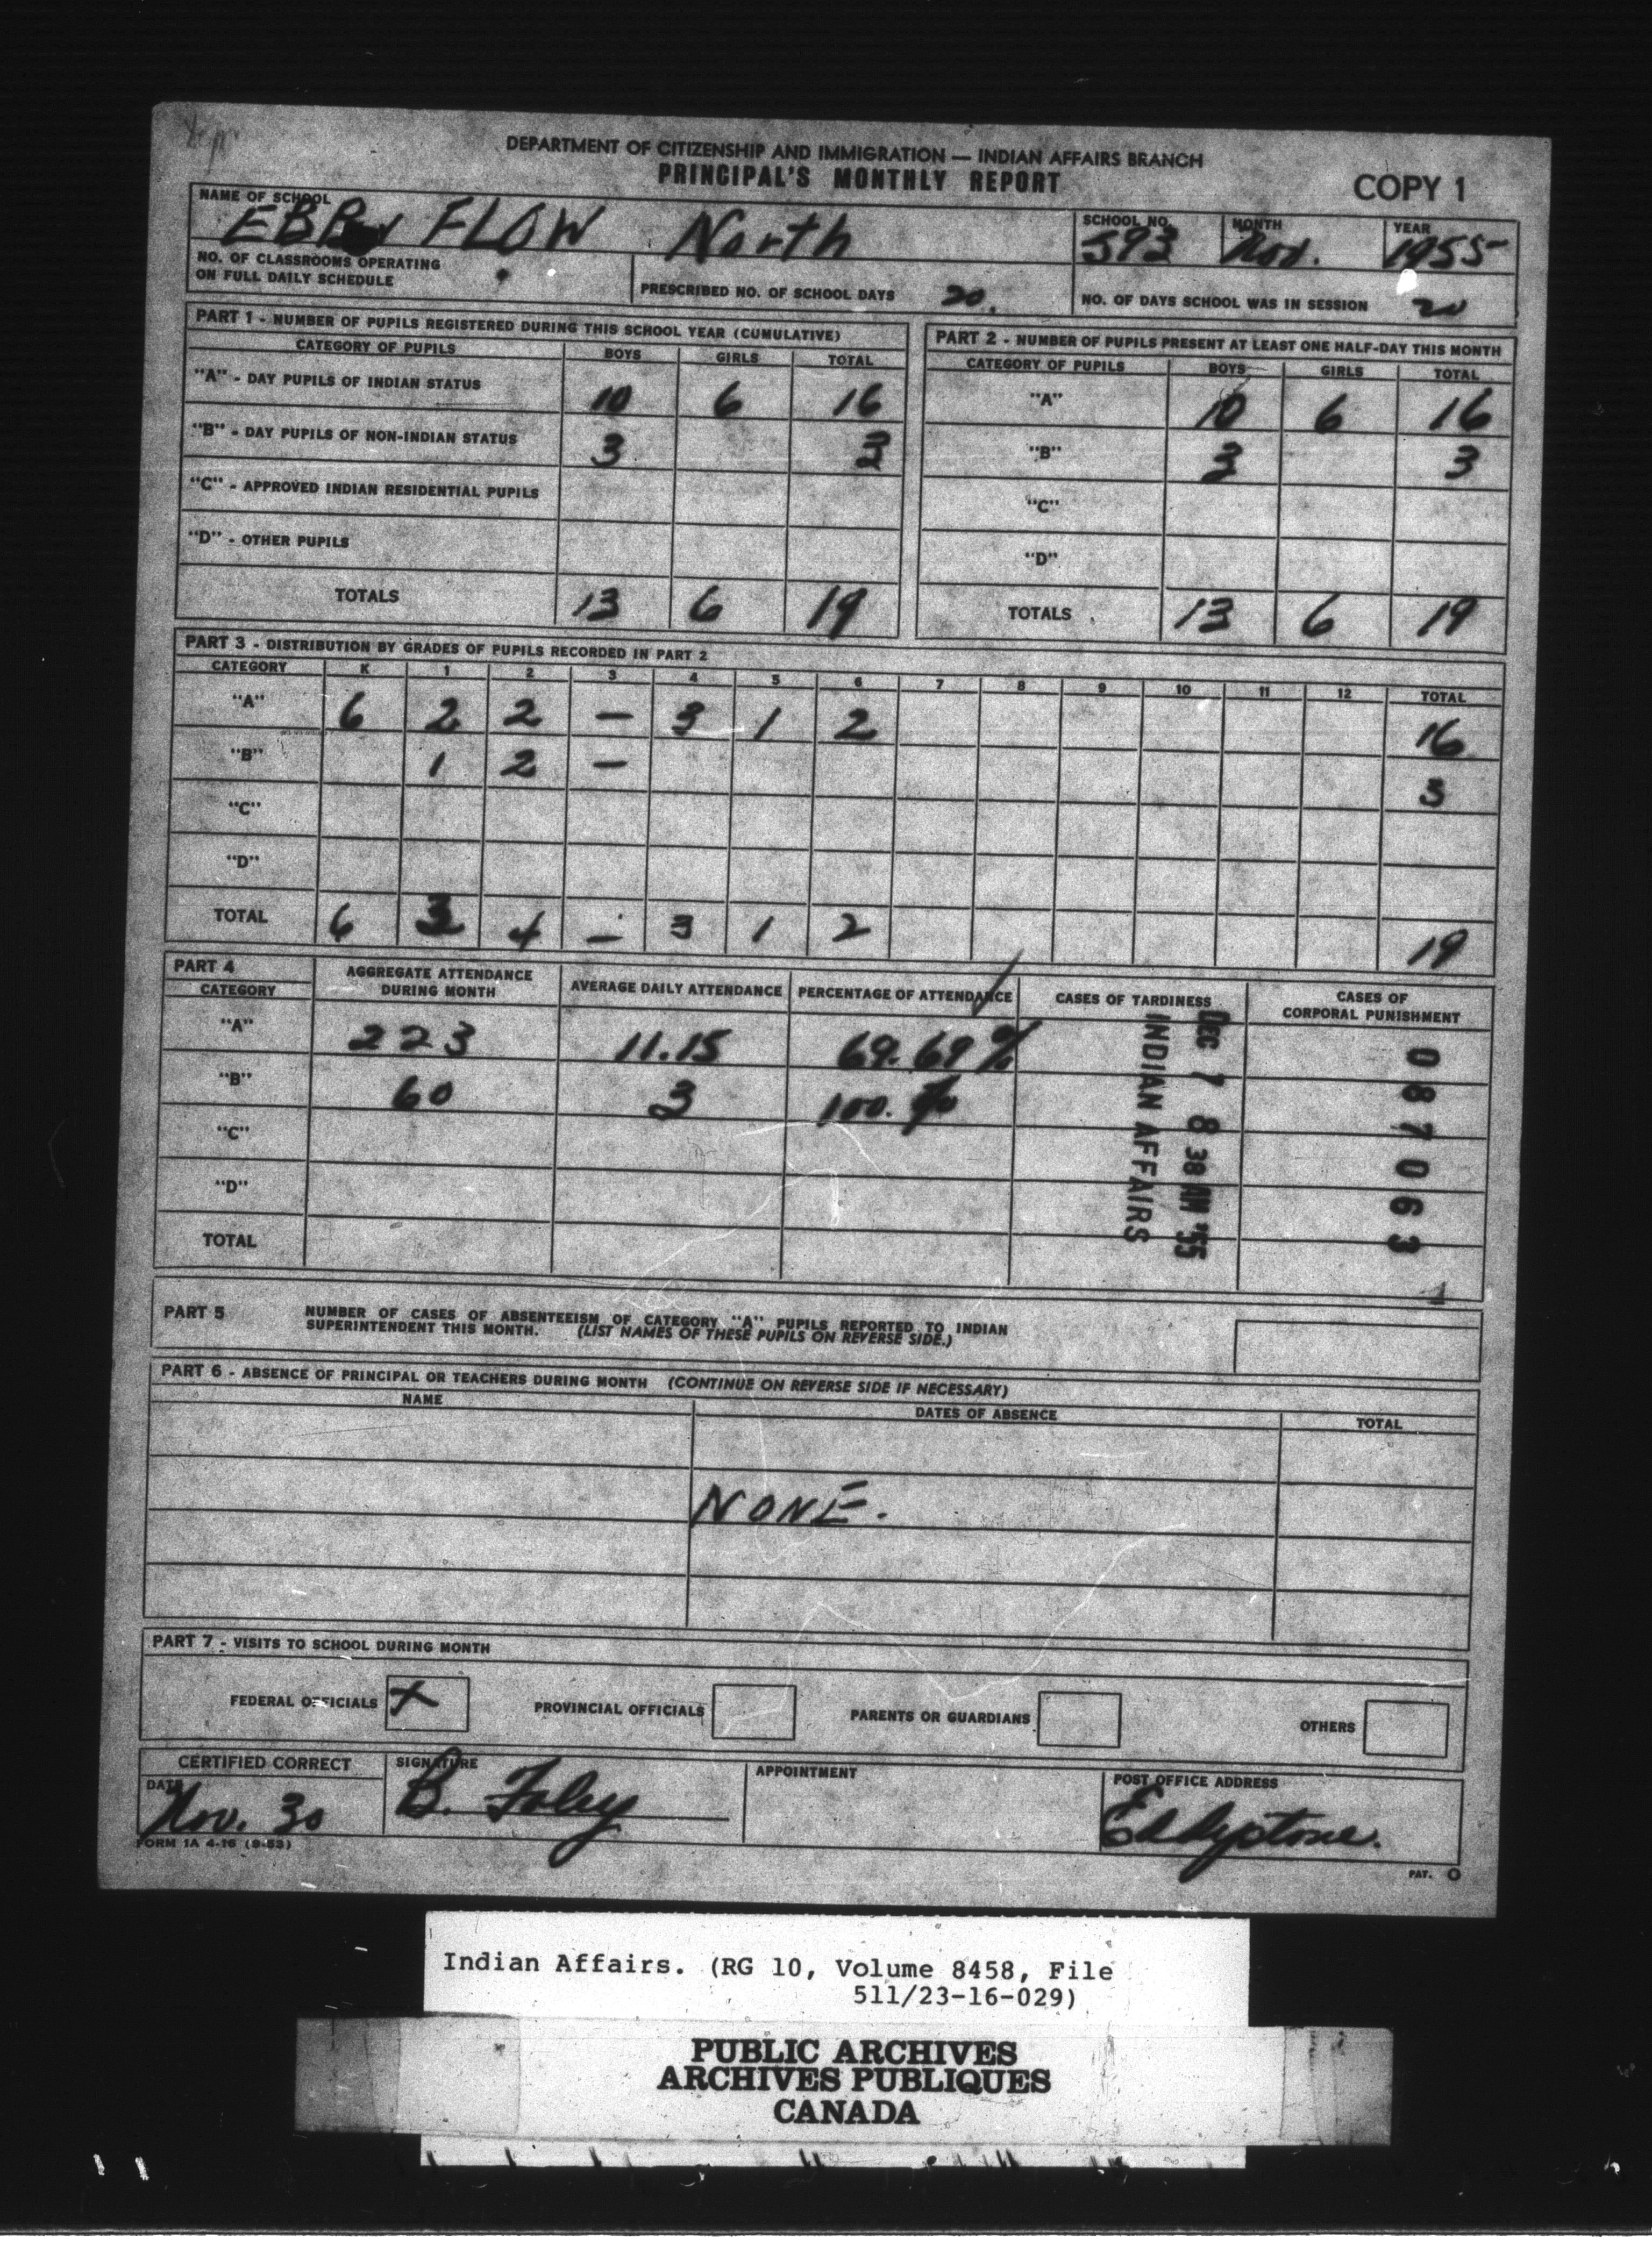 DEPARTMENT OF CITIZENSHIP AND IMMIGRATION — INDIAN AFFAIRS BRANCH
PRINCIPAL'S MONTHLY REPORT
COPY 1
NAME OF SCHOOL
FLOW North
SCHOOL NO. 593
MONTH Nov.
YEAR 1955
NO. OF CLASSROOMS OPERATING
ON FULL DAILY SCHEDULE
PRESCRIBED NO. OF SCHOOL DAYS 20.
NO. OF DAYS SCHOOL WAS IN SESSION 20
PART 1 - NUMBER OF PUPILS REGISTERED DURING THIS SCHOOL YEAR (CUMULATIVE)
CATEGORY OF PUPILS BOYS GIRLS TOTAL
"A" - DAY PUPILS OF INDIAN STATUS 10 6 16
"B" - DAY PUPILS OF NON-INDIAN STATUS 3 3
"C" - APPROVED INDIAN RESIDENTIAL PUPILS
"D" - OTHER PUPILS
TOTALS 13 6 19
PART 2 - NUMBER OF PUPILS PRESENT AT LEAST ONE HALF-DAY THIS MONTH
CATEGORY OF PUPILS BOYS GIRLS TOTAL
"A" 10 6 16
"B" 3 3
"C"
"D"
TOTALS 13 6 19
PART 3 - DISTRIBUTION BY GRADES OF PUPILS RECORDED IN PART 2
CATEGORY K 1 2 3 4 5 6 7 8 9 10 11 12 TOTAL
"A" 6 2 2 — 3 1 2 16
"B" 1 2 — 3
"C"
"D"
TOTAL 6 3 4 — 3 1 2 19
PART 4
CATEGORY
AGGREGATE ATTENDANCE
DURING MONTH
AVERAGE DAILY ATTENDANCE
PERCENTAGE OF ATTENDANCE
CASES OF TARDINESS
CASES OF
CORPORAL PUNISHMENT
"A" 223 11.15 69.69 %
"B" 60 3 100. %
"C"
"D"
TOTAL
DEC 7 8 38 AM '55
INDIAN AFFAIRS
087063
PART 5 NUMBER OF CASES OF ABSENTEEISM OF CATEGORY "A" PUPILS REPORTED TO INDIAN
SUPERINTENDENT THIS MONTH. (LIST NAMES OF THESE PUPILS ON REVERSE SIDE.)
PART 6 - ABSENCE OF PRINCIPAL OR TEACHERS DURING MONTH (CONTINUE ON REVERSE SIDE IF NECESSARY)
NAME DATES OF ABSENCE TOTAL
NONE.
PART 7 - VISITS TO SCHOOL DURING MONTH
FEDERAL OFFICIALS X PROVINCIAL OFFICIALS PARENTS OR GUARDIANS OTHERS
CERTIFIED CORRECT
DATE
Nov. 30
SIGNATURE
B. Foley
APPOINTMENT
POST OFFICE ADDRESS
Eddystone.
FORM 1A 4-16 (9-53)
PAT.
Indian Affairs. (RG 10, Volume 8458, File
511/23-16-029)
PUBLIC ARCHIVES
ARCHIVES PUBLIQUES
CANADA